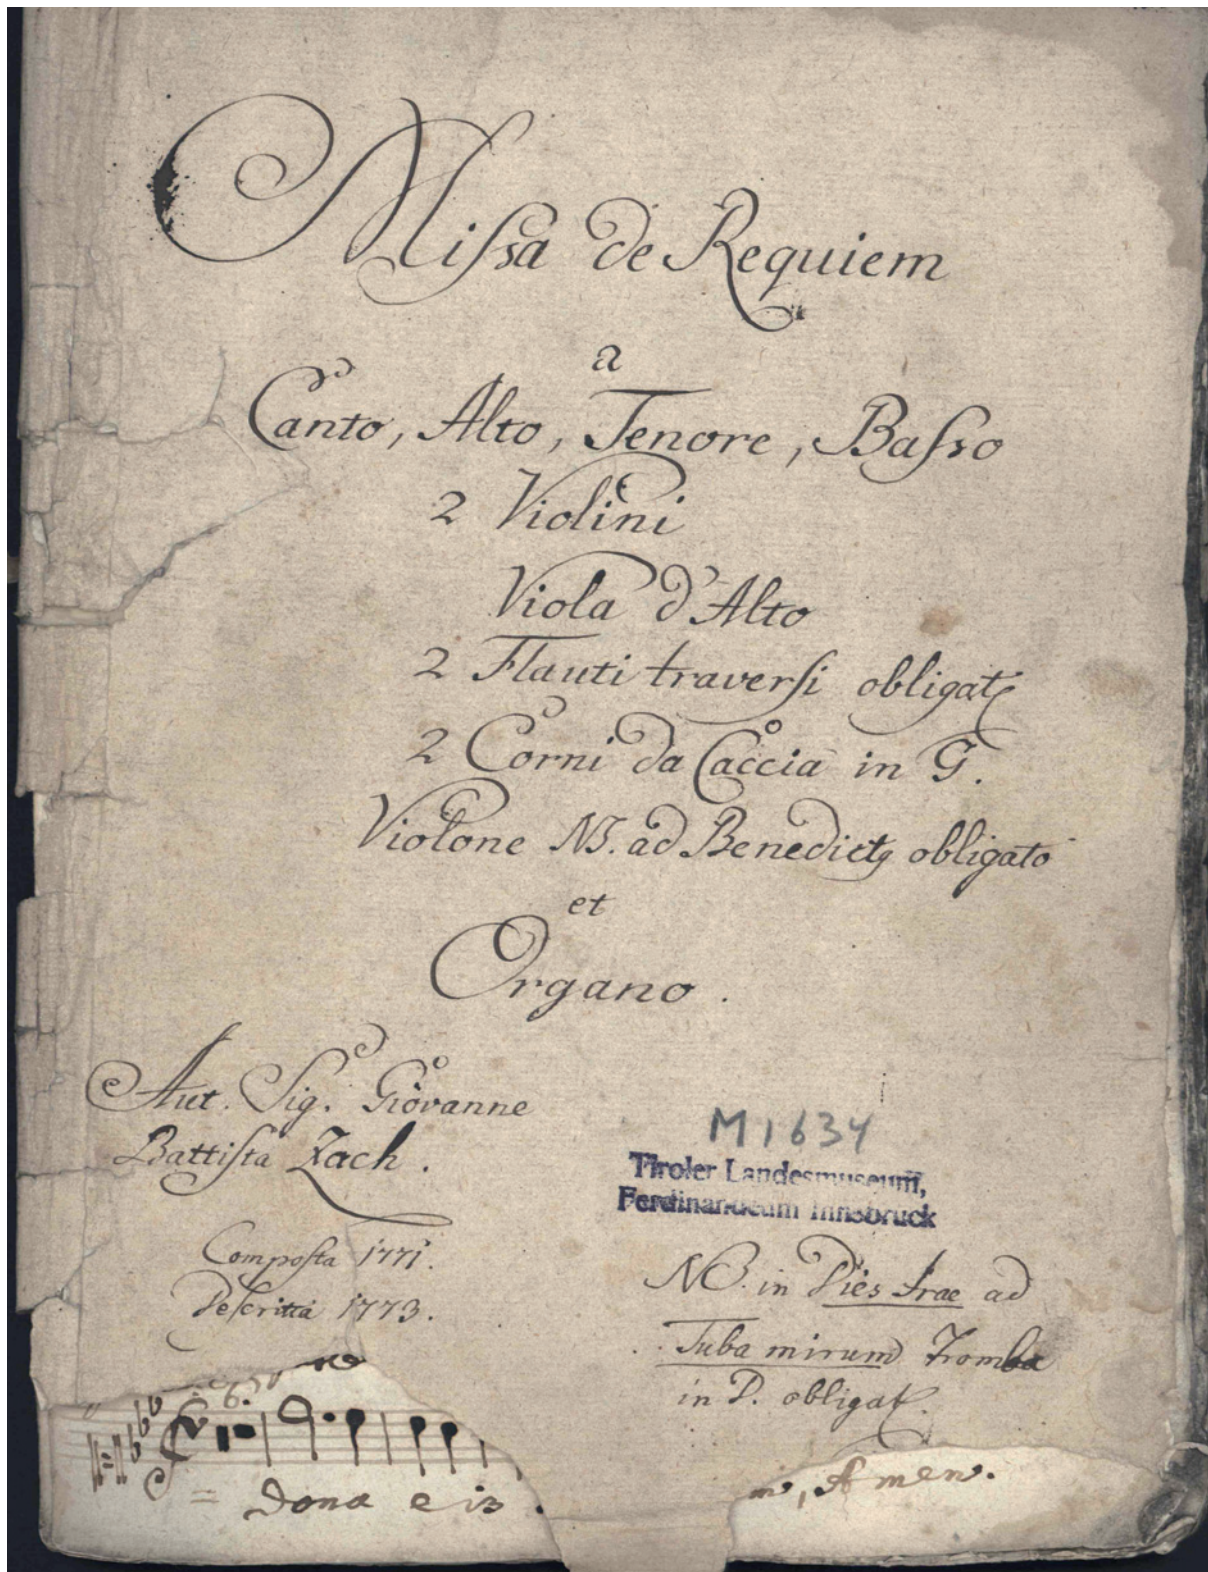 Missa de Requiem
a
Canto, Alto, Tenore, Basso
2 Violini
Viola d'Alto
2 Flauti traversi obligati
2 Corni da Caccia in G.
Violone NB. ad Benedictus obligato
et
Organo.
Aut. Sig. Giovanne
Battista Zach.
Composta 1771.
Descritta 1773.
M1634
Tiroler Landesmuseum,
Ferdinandeum Innsbruck
NB. in Dies Irae ad
Tuba mirum Tromba
in D. obligat.
= Dona eis
, Amen.